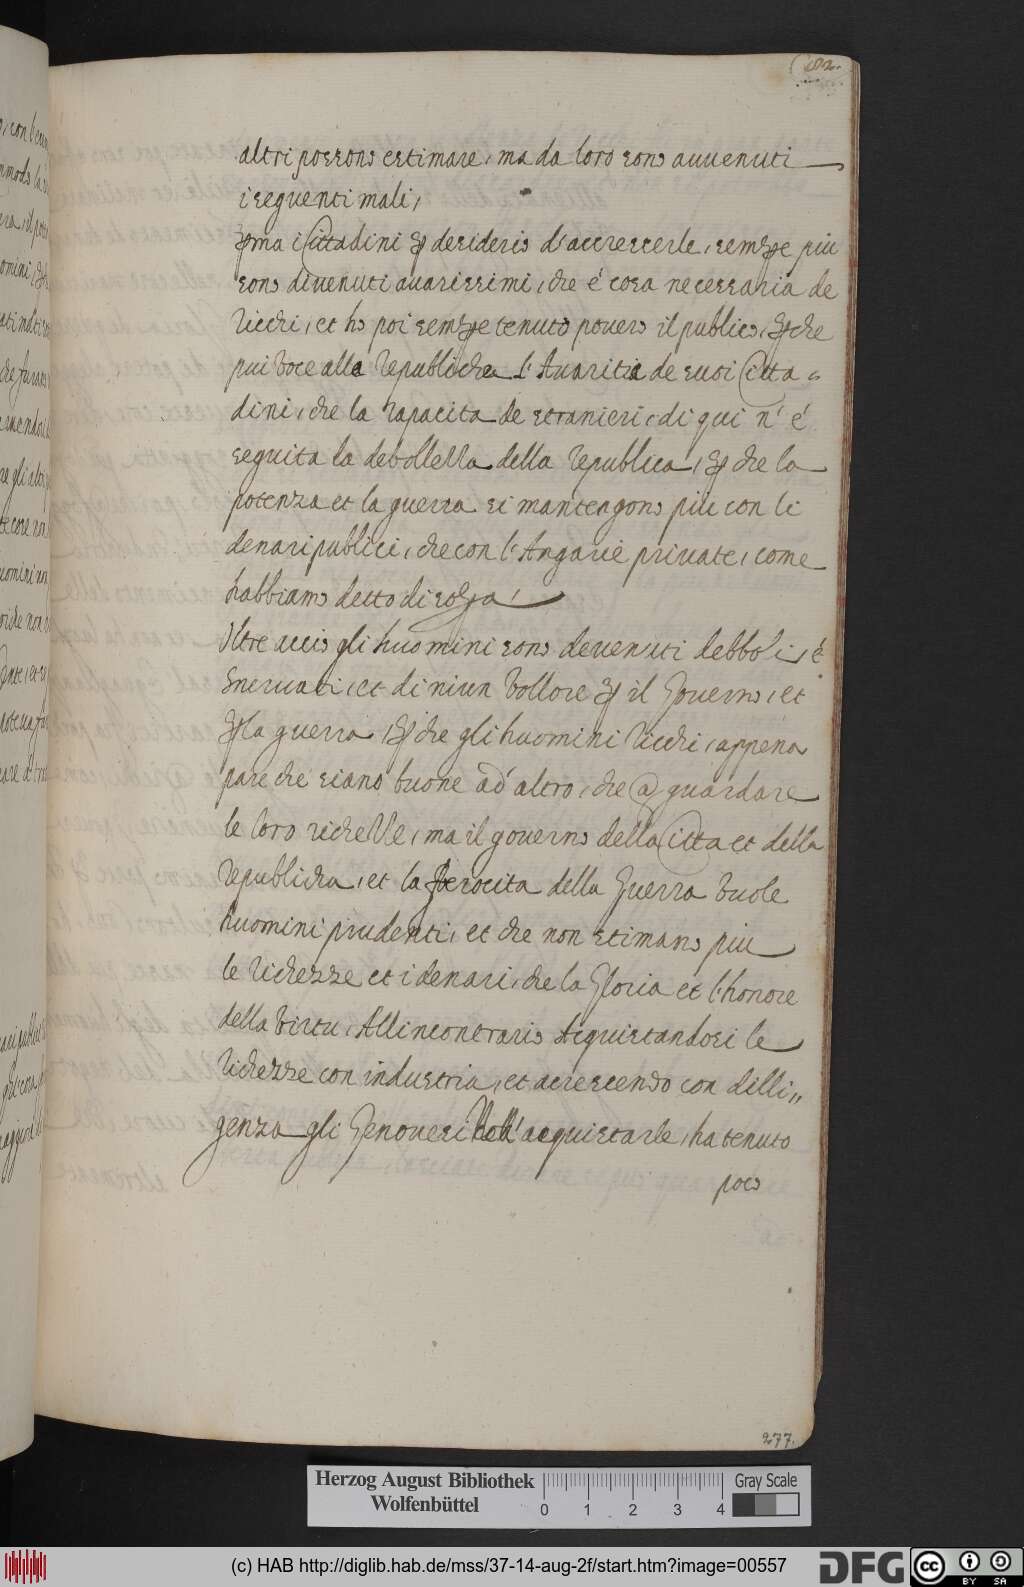 182.
altri possono estimare, ma da loro sono avvenuti
i seguenti mali,
p̱ma i Cittadini ꝑ desiderio d'accrescerle, semꝑe piu
sono divenuti avarissimi, che é cosa necessaria de
Ricchi, et hò poi semꝑe tenuto povero il publico, ꝑche
piu noce alla Republicha l'Avaritia de suoi Citta=
dini, che la rapacita de stranieri, di qui n'é
seguita la debollezza della republica, ꝑ che la
potenza et la guerra si mantengono piu con li
denari publici, che con l'Angarie private, come
habbiamo detto di sopra,
Oltre accio gli huomini sono devenuti debboli, é
Enervati, et di niun Vallore ꝑ il Governo, et
ꝑ la guerra, ꝑ che gli huomini Ricchi, appena
pare che siano buone ad altro, che a guardare
le loro richezze, ma il governo della Citta et della
Republicha, et la ferocita della Guerra vuole
huomini prudenti, et che non stimano piu
le Richezze et i denari, che la Gloria et l'honore
della virtu, All'incontrario Acquistandosi le
Richezze con industria, et acrescendo con dilli„
genza gli Genovesi Nell' acquistarle, ha tenuto
poco
277.
Herzog August Bibliothek
Wolfenbüttel
0 1 2 3 4
Gray Scale
(c) HAB http://diglib.hab.de/mss/37-14-aug-2f/start.htm?image=00557
DFG
CC BY SA